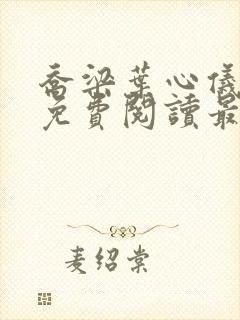 喬梁葉心儀
免費閱讀最
麦绍棠